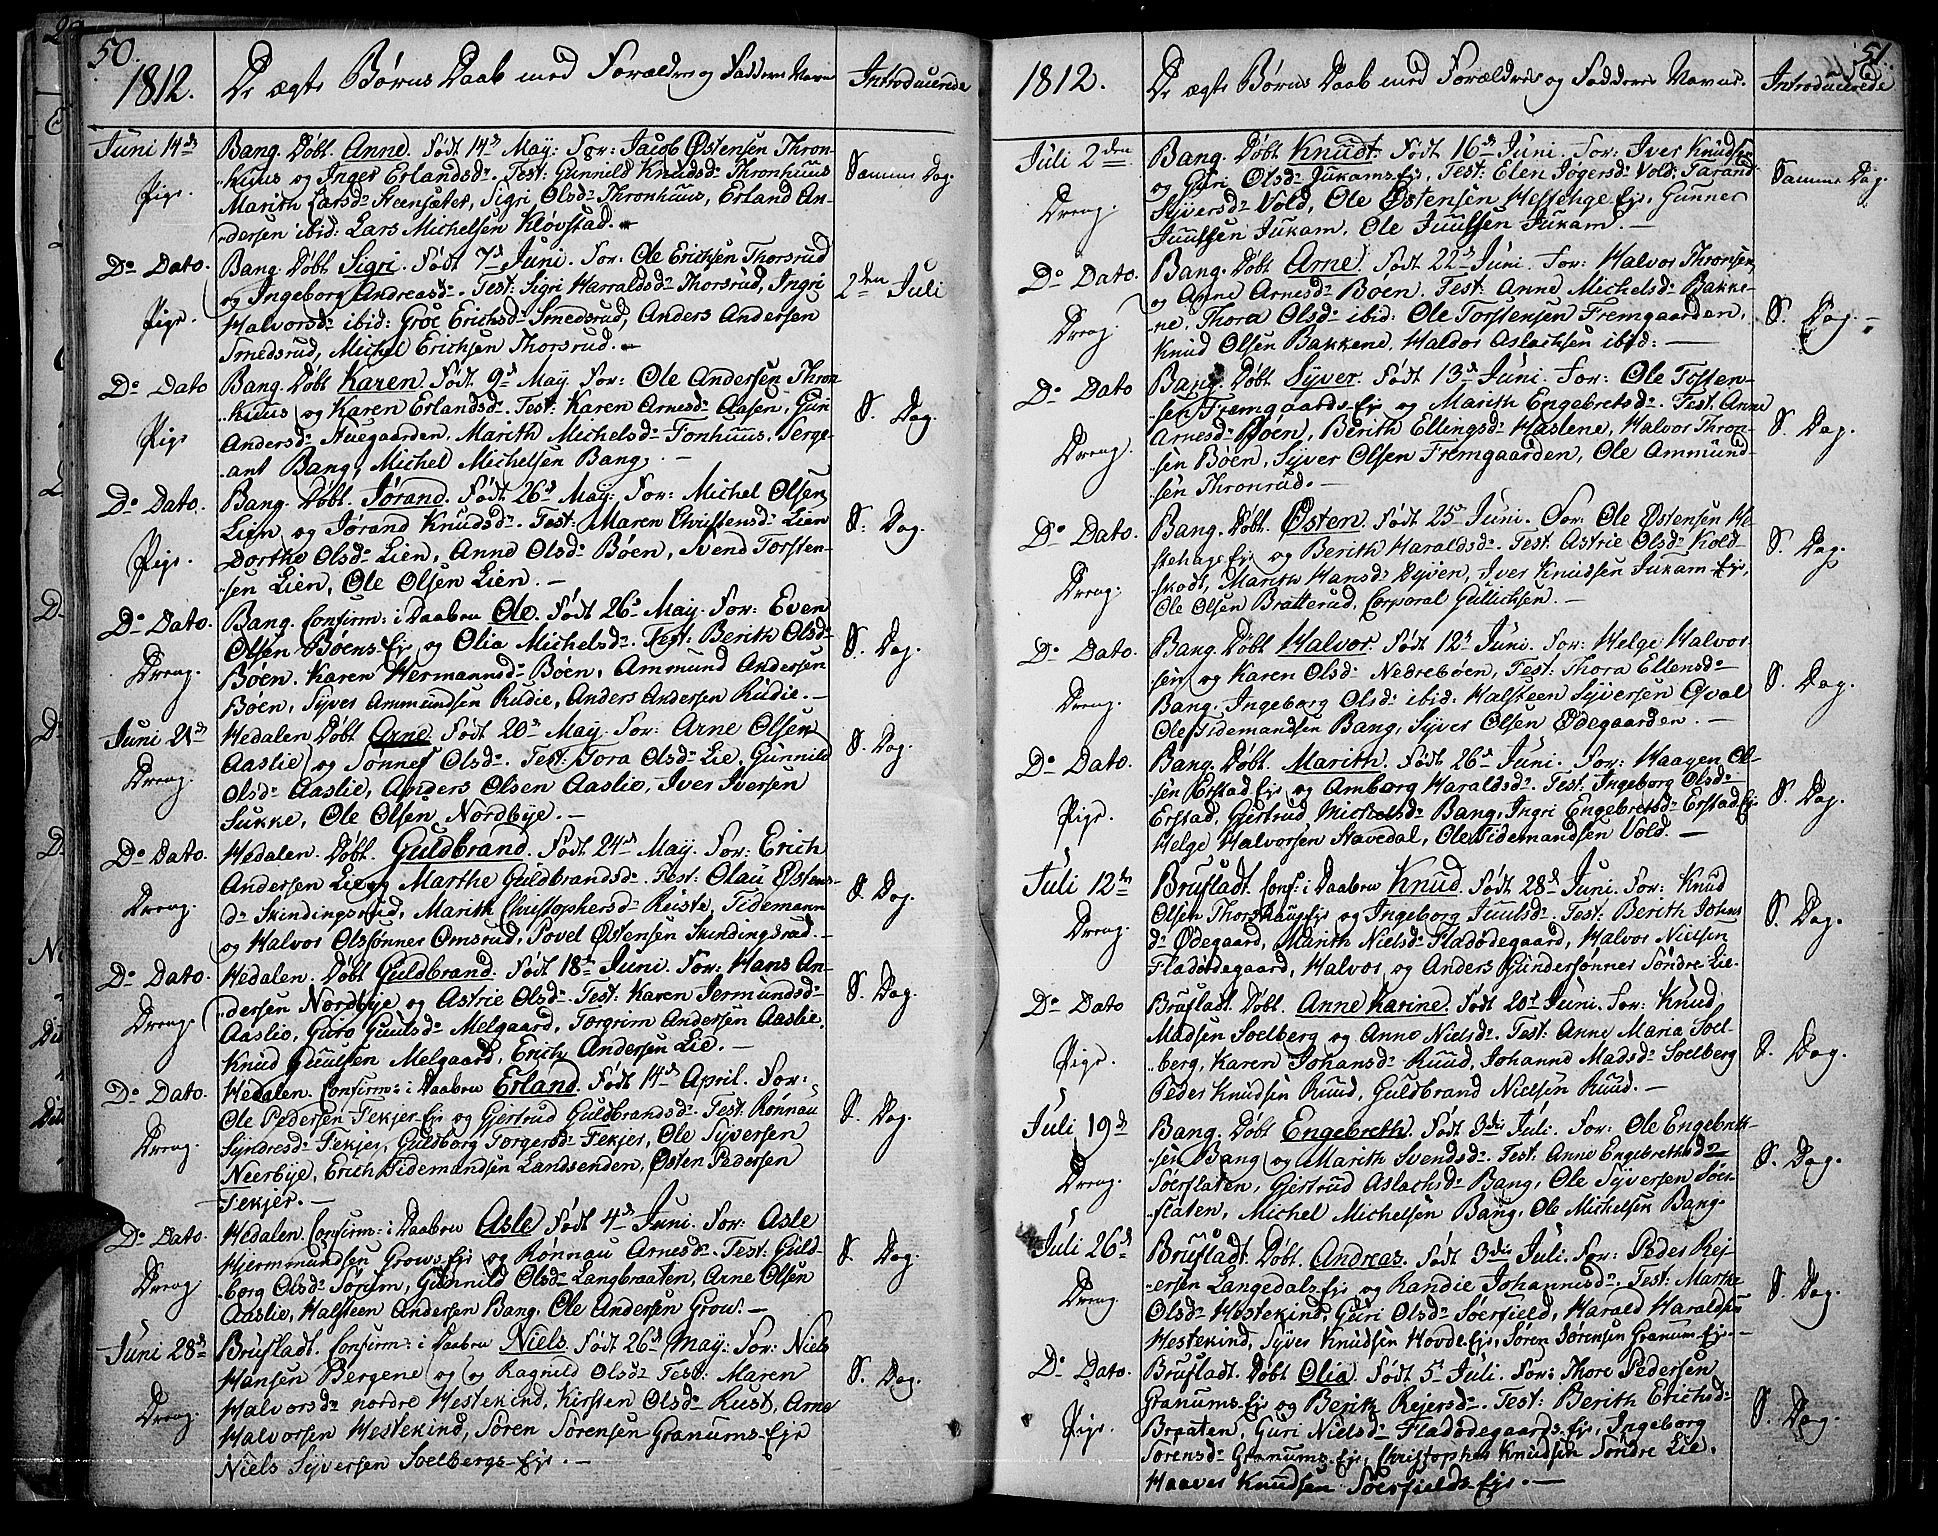 50.
1812. De ægte Børns Daab med Forældres og Fadderes Navne Introducerede
Juni 14de Bang. Døbt Anne. Født 14de May: For: Jacob Østensen Thron-
Pige. huus og Inger Erlandsd. Test: Gunnild Knudsd. Thronhuus Samme Dag.
Marith Larsd. Steensæter, Sigri Olsd. Thronhuus, Erland An-
dersen ibid: Lars Michelsen Kløvstad.
Do Dato. Bang. Døbt Sigri. Født 7de Juni. For: Ole Erichsen Thorsrud
og Ingeborg Andreasd. Test: Sigri Harraldsd. Thorsrud, Ingri 2den Juli
Pige. Halvorsd. ibid: Groe Erichsd. Smedsrud, Anders Andersen
Smedsrud, Michel Erichsen Thorsrud.
Do Dato Bang. Døbt Karen. Født 9de May. For: Ole Andersen Thron
huus og Karen Erlandsd. Test: Karen Arnesd. Aasen, Guri S. Dag.
Pige Andersd. Huegaarden, Marith Michelsd. Fonhuus, Serge-
ant Bang, Michel Michelsen Bang. -
Do Dato. Bang. Døbt. Jørand. Født 26de May: For: Michel Olsen
Lien og Jørand Knudsd. Test: Maren Christensd. Lien S. Dag.
Pige. Dorthe Olsd. Lien, Anne Olsd. Bøen, Svend Torsten-
sen Lien, Ole Olsen Lien. -
Do Dato. Bang. Confirm: i Daaben Ole. Født 26de May. For: Even
Olsen Bøens Eje og Olia Michelsd. Test: Berith Olsd. S. Dag.
Dreng. Bøen. Karen Hermannsd. Bøen, Ammund Andersen
Bøen, Syver Ammundsen Rudie, Anders Andersen Rudie. -
Juni 21de Hedalen Døbt Arne. Født 20de May. For: Arne Olsen
Aaslie og Sønnef Olsd. Test: Tora Olsd. Lie, Gunnild S. Dag.
Dreng Olsd. Aaslie, Anders Olsen Aaslie, Iver Iversen
Sukke, Ole Olsen Nordbye. -
Do Dato. Hedalen. Døbt. Guldbrand. Født 24de May. For: Erich
Andersen Lie og Marthe Guldbrandsd. Test: Olau Østens- S. Dag.
Dreng. d. Skindingsrud, Marith Christophersd. Reiste, Tidemann
og Halvor Olssønner Omsrud, Povel Østensen Skindingsrud. -
Do Dato. Hedalen. Døbt Guldbrand. Født 18de Juni. For: Hans An-
dersen Nordbye og Astrie Olsd. Test: Karen Jermundsd. S. Dag.
Dreng. Aaslie, Guro Guulsd. Melgaard, Torgrim Andersen Aaslie,
Knud Guulsen Melgaard, Erich Andersen Lie. -
Do Dato. Hedalen. Confirm: i Daaben Erland. Født 14de April. For:
Ole Pedersen Tekjer Eje og Gjertrud Guldbrandsd. Test. Rønnau S. Dag.
Dreng. Syndresd. Tekjer, Guldborg Torgersd. Tekjer, Ole Syversen
Neerbye, Erich Tidemandsen Landsenden, Østen Pedersen
Tekjer. -
Do Dato. Hedalen. Confirm: i Daaben Asle. Født 4de Juni. For: Asle
Hjermmundsen Grows Eje og Rønnau Arnesd. Test: Guld- S. Dag.
Dreng borg Olsd. Sørum, Gunnild Olsd. Langbraaten, Arne Olsen
Aaslie, Halsteen Andersen Bang, Ole Andersen Grow. -
Juni 28de Brufladt. Confirm: i Daaben Niels. Født 26de May: For: Niels
Hansen Bergene og Ragnild Olsd. Test: Maren S. Dag.
Dreng. Halvorsd. nordre Hestekind, Kirsten Olsd. Rust, Arne
Halvorsen Hestekind, Søren Sørensen Granums-Eje
Niels Syversen Soelbergs-Eje. -
51.
1812. De ægte Børns Daab med Forældres og Fadderes Navne. Introducerede
Juli 2den Bang. Døbt Knudt. Født 16de Juni. For: Iver Knudsen
og Guri Olsd. Jukams Eje, Test: Elen Jøgersd. Vold, Tarand Samme Dag.
Dreng. Syversd. Vold, Ole Østensen Hestenge Eje, Gunner
Juulsen Jukam, Ole Juulsen Jukam. -
Do Dato. Bang. Døbt Arne. Født 22de Juni. For: Halvor Thronsen
og Anne Arnesd. Bøen. Test: Anne Michelsd. Bakke- S. Dag. -
Dreng. ne, Thora Olsd. ibid: Ole Torstensen Fremgaarden,
Knud Olsen Bakkene, Haldor Aslachsen ibid: -
Do Dato Bang. Døbt Syver. Født 13de Juni. For: Ole Tosten-
sen Fremgaards-Eje og Marith Engebretsd. Test. Anne
Dreng. Arnesd. Bøen, Berith Ellingsd. Haslene, Halvor Thron- S. Dag.
sen Bøen, Syver Olsen Fremgaarden, Ole Ammund-
sen Thronrud. -
Do Dato. Bang. Døbt. Østen. Født 25de Juni. For: Ole Østensen He-
stehage Eje og Berith Haraldsd. Test. Astrie Olsd. Kold- S. Dag.
Dreng. skodt, Marith Hansd. Dyven, Iver Knudsen Jukam-Eje,
Ole Olsen Bratterud, Corporal Gullichsen. -
Do Dato. Bang. Døbt Halvor. Født 12te Juni. For: Helge Halvor-
sen og Karen Olsd. Nedrebøen, Test: Thora Ellensd. S. Dag.
Dreng. Bang. Ingeborg Olsd. ibid: Halsteen Syversen Qval
Ole Tidemandsen Bang, Syver Olsen Ødegaarden. -
Do Dato. Bang. Døbt. Marith. Født 26de Juni. For: Haagen Ol-
sen Erstad Eje og Amborg Haraldsd. Test: Ingeborg Olsd. S. Dag.
Pige. Erstad, Gjertrud Michelsd. Bang, Ingri Engebretsd. Erstad Eje
Helge Halvorsen Stavedal, Ole Tidemandsen Vold. -
Juli 12te Brufladt. Conf: i Daaben Knud. Født 28de Juni. For: Knud
Olsen Thorshaug Eje og Ingeborg Juulsd. Test: Berith Johns S. Dag.
Dreng. d. Ødegaard, Marith Nielsd. Fladødegaard, Halvor Nielsen
Fladødegaard, Halvor og Anders Gundersønner Søndre Lie.
Do Dato Brufladt. Døbt. Anne Karine. Født 20de Juni. For: Knud
Madsen Soelberg og Anne Nielsd. Test: Anne Maria Soel- S. Dag.
Pige. berg, Karen Johansd. Ruud, Johanne Madsd. Soelberg
Peder Knudsen Ruud, Guldbrand Nielsen Ruud. -
Juli 19de Bang. Døbt Engebreth. Født 3die Juli. For: Ole Engebreth-
sen Bang og Marith Svendsd. Test: Anne Engebrethsd. S. Dag.
Dreng. Søerflaten, Gjertrud Aslachsd. Bang, Ole Syversen Søer-
flaten, Michel Michelsen Bang, Ole Michelsen Bang.
Juli 26de Brufladt. Døbt. Andreas. Født 3die Juli. For: Peder Rej-
ersen Langedals Eje og Randie Johannisd. Test: Marthe S. Dag.
Dreng Olsd. Hestekind, Guri Olsd. Søerfield, Harald Haraldsen
Hestekind, Syver Knudsen Hovde Eje, Søren Sørensen Granum-Eje. -
Do Dato. Brufladt. Døbt Olia. Født 5te Juli. For: Thore Pedersen
Granums-Eje og Berith Rejersd. Test: Berith Erichsd. S. Dag.
Pige. Braaten, Guri Nielsd. Fladødegaards-Eje, Ingeborg
Sørensd. Granums-Eje, Christopher Knudsen Søndre Lie.
Haaver Knudsen Søerfields-Eje. -